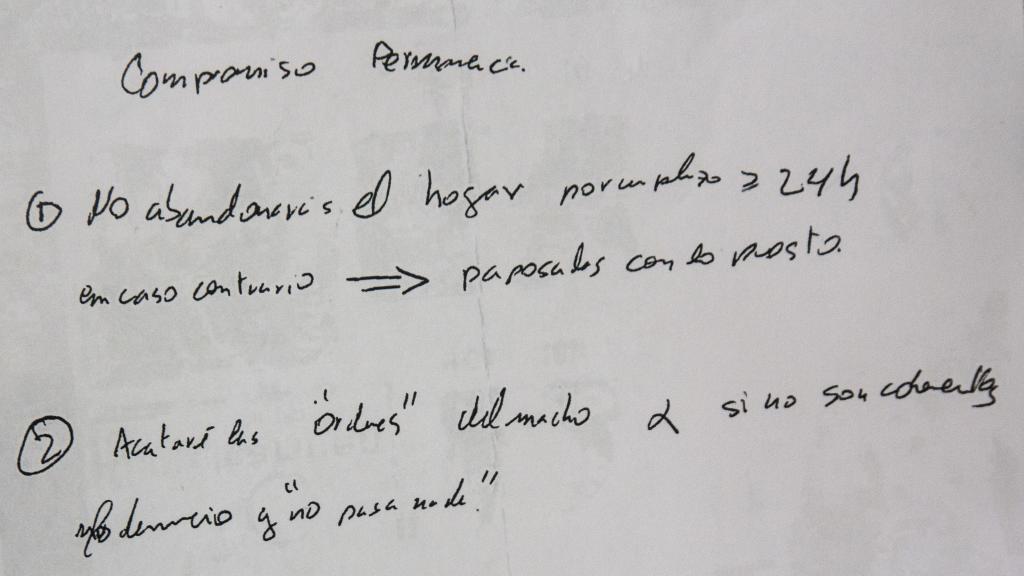 Compromiso Permanencia.
① No abandonarás el hogar por un plazo ≥ 24h
en caso contrario ⟹ con lo puesto.
② Acataré las "órdenes" del macho α si no son coherentes
denuncio y "no pasa nada".